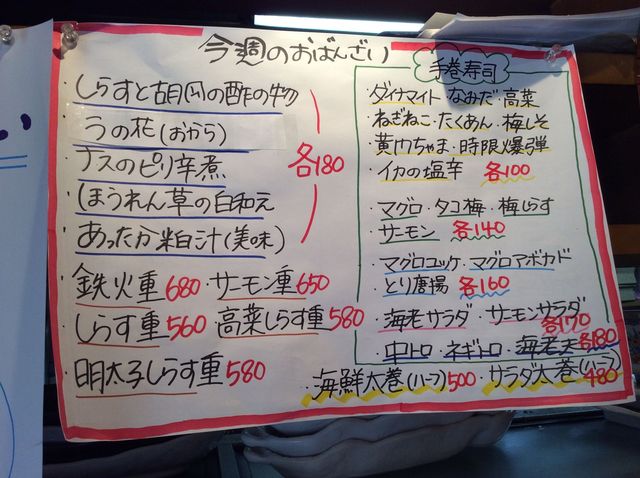 今週のおばんざい
・しらすと胡瓜の酢の物
・うの花(おから)
・ナスのピリ辛煮
・ほうれん草の白和え
・あったか粕汁(美味)
各180
・鉄火重680・サーモン重650
・しらす重560・高菜しらす重580
・明太子しらす重580
手巻寿司
・ダイナマイト・なみだ・高菜
・ねぎねこ・たくあん・梅しそ
・黄門ちゃま・時限爆弾
・イカの塩辛 各100
・マグロ・タコ梅・梅しらす
・サーモン 各140
・マグロユッケ・マグロアボカド
・とり唐揚 各160
・海老サラダ・サーモンサラダ
各170
・中トロ・ネギトロ・海老天各180
・海鮮太巻(ハーフ)500・サラダ太巻(ハーフ)480